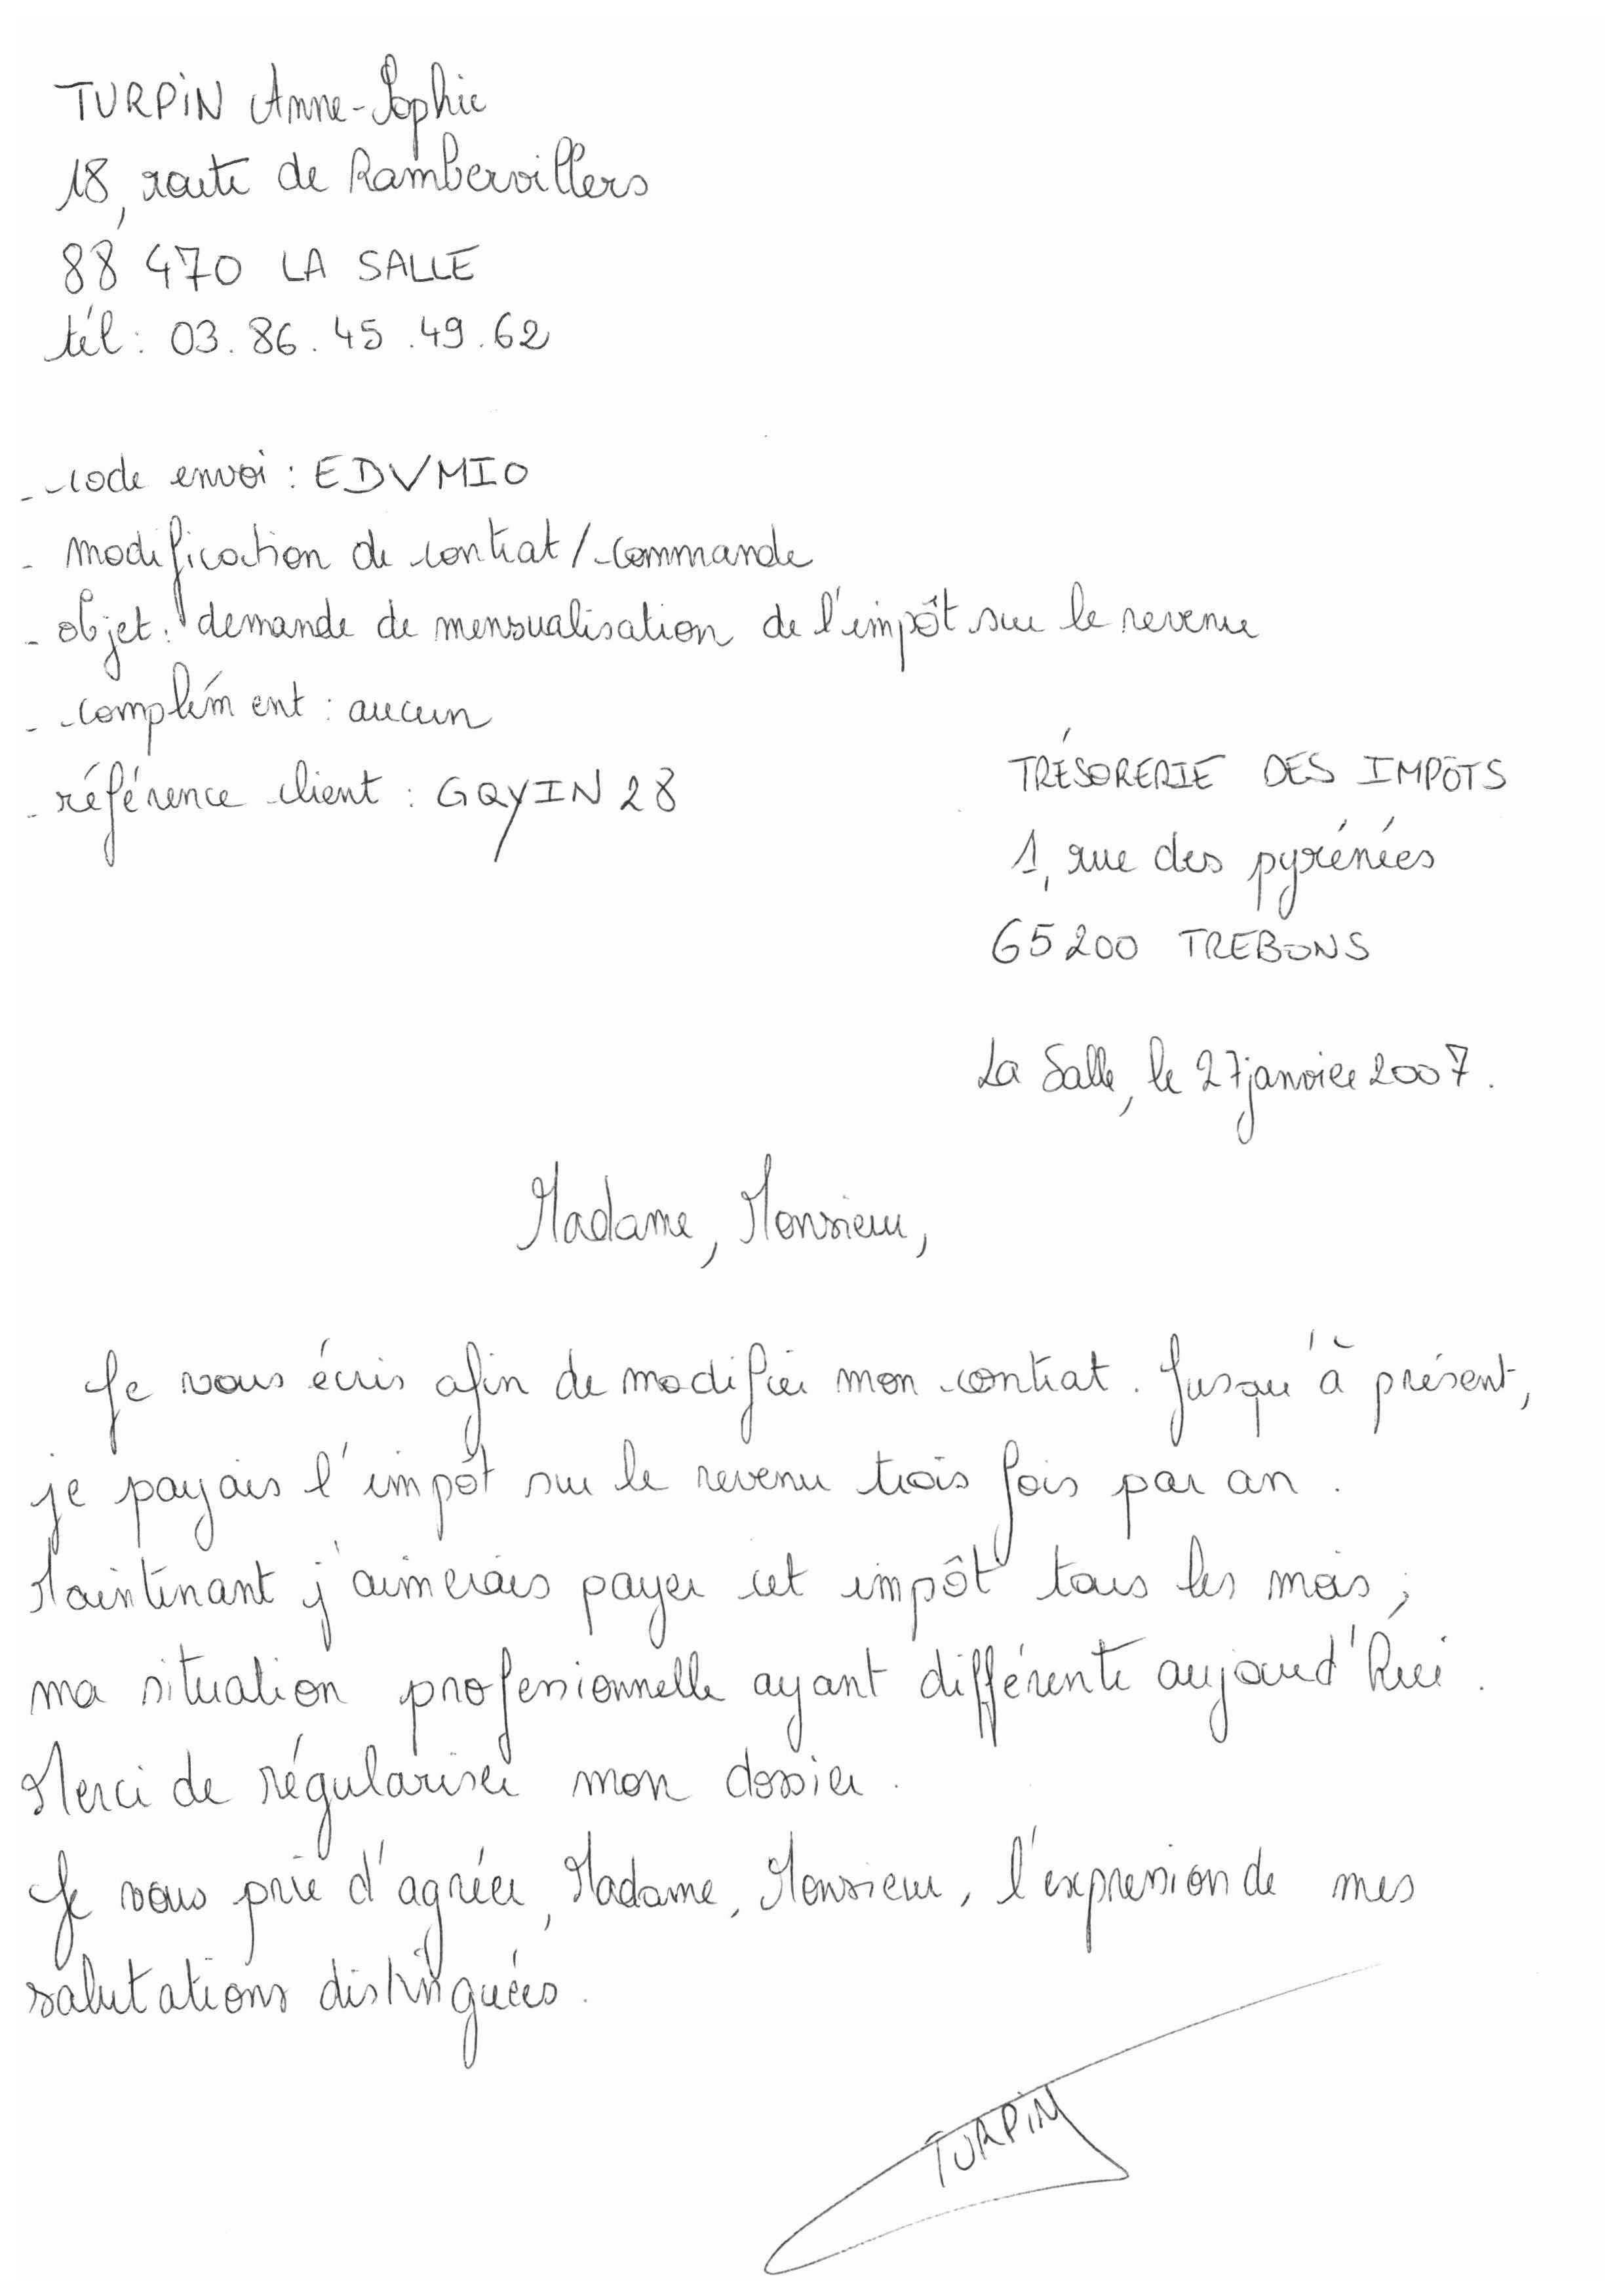 TURPIN Anne-Sophie
18, route de Rambervillers
88 470 LA SALLE
tél : 03.86.45.49.62
- code envoi : EDVMIO
- modification de contrat / commande
- objet : demande de mensualisation de l'impôt sur le revenu
- complément : aucun
- référence client : GQYIN28
TRÉSORERIE DES IMPÔTS
1, rue des pyrénées
65200 TREBONS
La Salle, le 27 janvier 2007.
Madame, Monsieur,
Je vous écris afin de modifier mon contrat. Jusqu'à présent,
je payais l'impôt sur le revenu trois fois par an.
Maintenant j'aimerais payer cet impôt tous les mois ;
ma situation professionnelle ayant différente aujourd'hui.
Merci de régulariser mon dossier.
Je vous prie d'agréer, Madame, Monsieur, l'expression de mes
salutations distinguées.
TURPIN